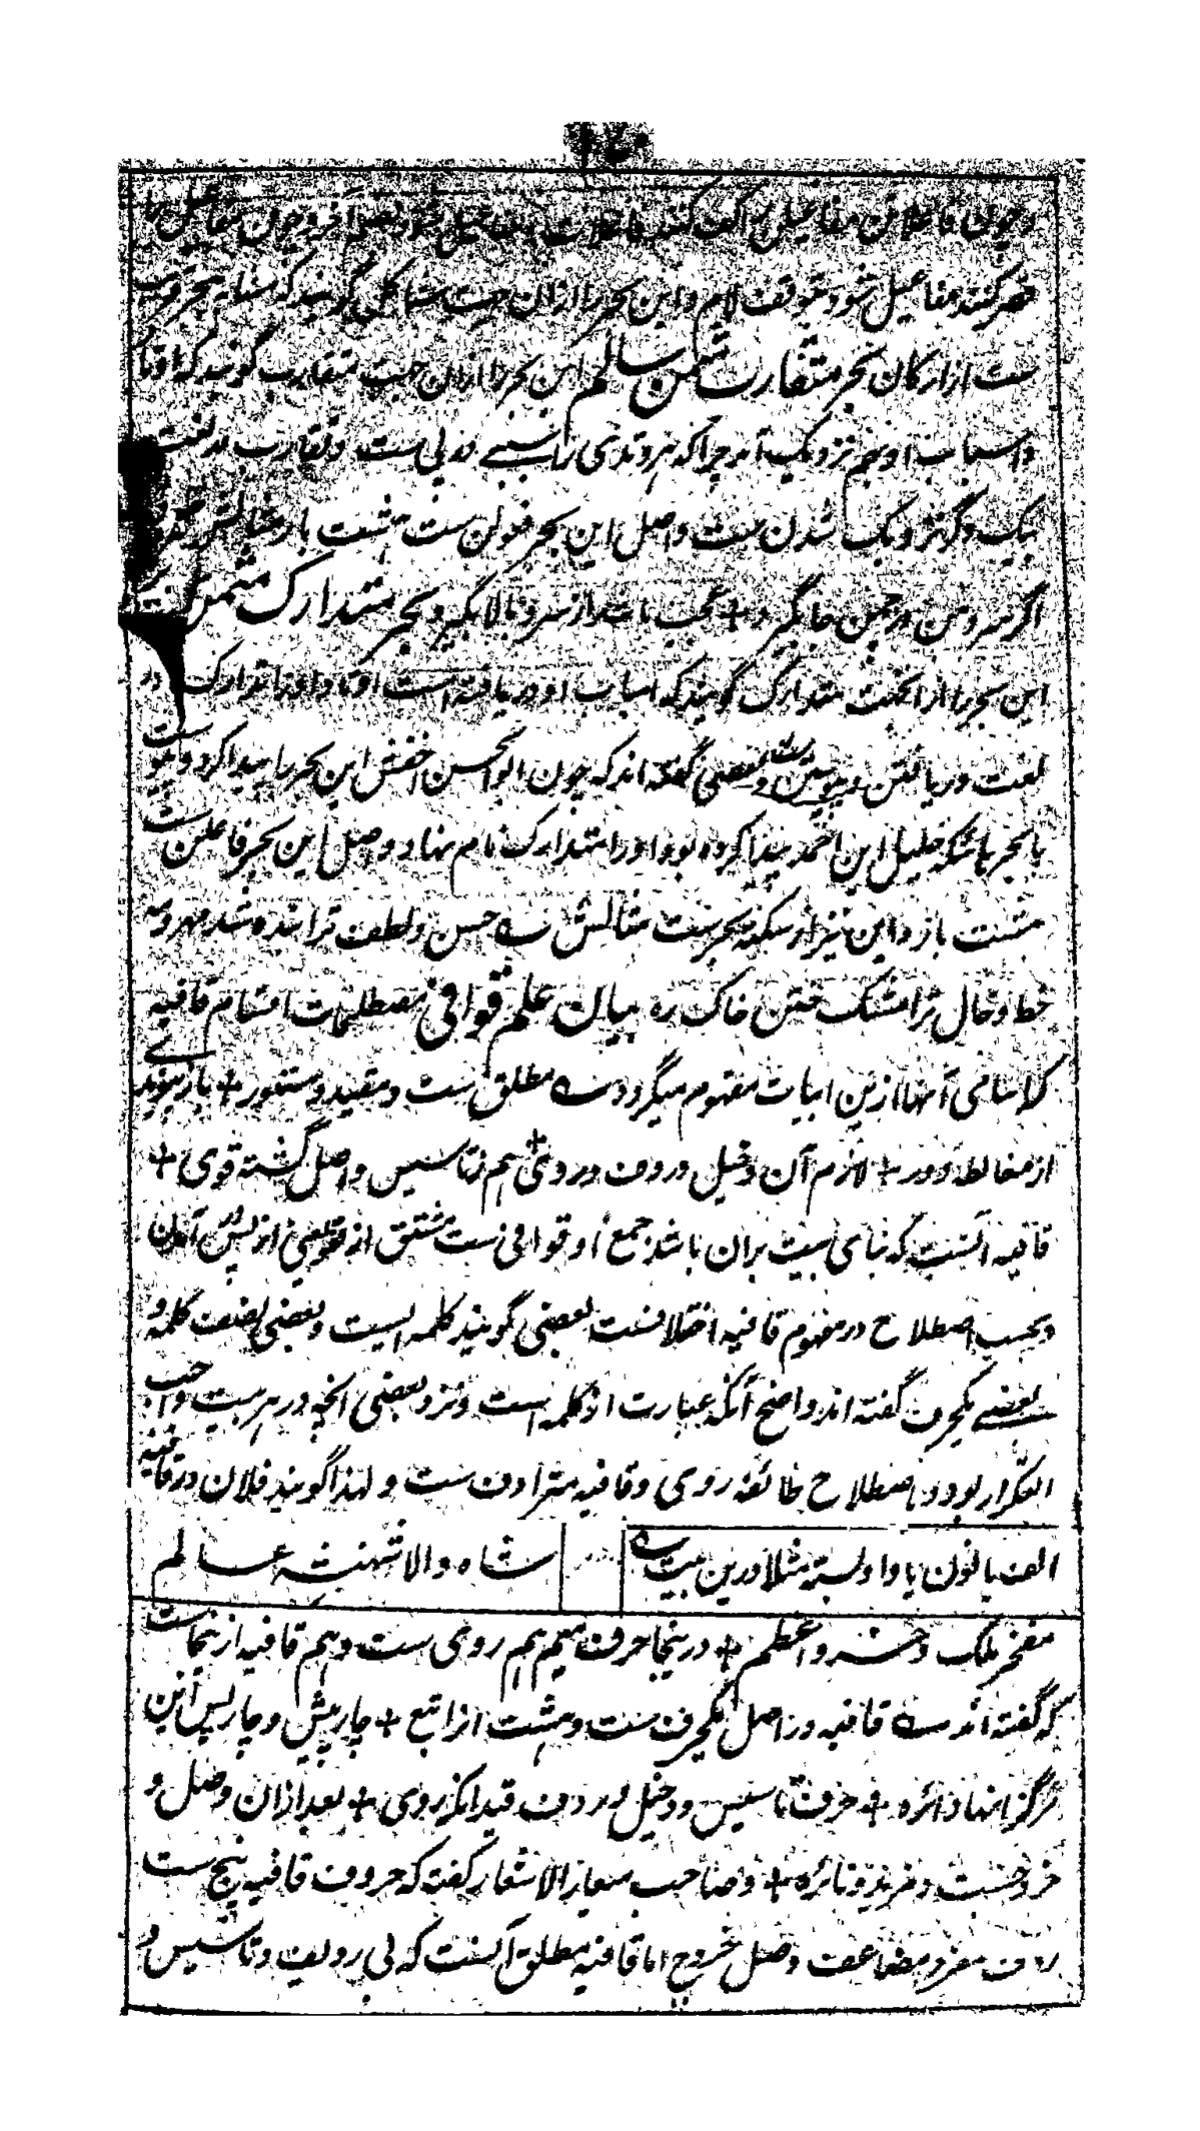 و چون فاعلاتن مفاعیلن را کف کنند فاعلات مفاعیل شود چون مفاعیل را
قصر کنند مفاعیل شود بتوقف لام و این بحر را ازان جهت مشاکل گویند که مشابه بحر قریب
ست از ارکان بحر متقارب مثمن سالم این بحر را ازان جهت متقارب گویند که اوتاد
و اسباب او بهم نزدیک اند چراکه هر وتدی را سببے در پی ست و تقارب در لغت
بیک دگر نزدیک شدن ست و اصل این بحر فعولن ست هشت بار مثالش
اگر سرو من در چمن جا بگیرد + عجب باشد از سرو بالا بگیرد بحر متدارک مثمن
این بحر را ازانجهت متدارک گویند که اسباب او دریافته است اوتاد او را تدارک در
لغت دریافتن و پیوستن ست و بعضی گفته اند که چون ابوالحسن اخفش این بحر را پیدا کرد و پیوست
با بحرهائیکه خلیل ابن احمد پیدا کرده بود او را متدارک نام نهاد و اصل این بحر فاعلن ست
هشت بار و این نیز از سکنه بحر ست مثالش ؎ حسن و لطف ترا بنده شد مهر و مه
خط و خال ترا مشک ختن خاک ره بیان علم قوافی مصطلحات اقسام قافیه
کہ اسامی آنها ازین ابیات مفهوم میگردد ؎ مطلق ست و مقید و مستور + باز پیوند
از مغالطه دور + لازم آن دخیل و ردف و روی + هم ز تاسیس و اصل گشته قوی +
قافیه آنست که بنای بیت بران باشد جمع او قوافی ست مشتق از قفو یعنی از پس در آمدن
و بحسب اصطلاح در مفهوم قافیه اختلافست بعضی گویند کلمه ایست و بعضی نصف کلمه و
بعضے یکحرف گفته اند و اضح آنکه عبارت از کلمه است و نزد بعضی انچه در هر بیت واجب
التکرار بود و باصطلاح طائفه روی و قافیه مترادف ست و لهذا گویند فلان در قافیه
الف یا نون یا واو بسته مثلا درین بیت ؎ شاه والا شهنشه عالم
مفخر ملک و خسرو اعظم + درینجا حرف میم هم روی ست و هم قافیه ازینجاست
که گفته اند ؎ قافیه در اصل یکحرف ست و هشت انرا تبع + چار پیش و چار پس این
مرکز انها دائره + حرف تاسیس و دخیل و ردف قید انگه روی + بعد ازان وصل و
خروجست و مزید و نائره + و صاحب معیار الاشعار گفته که حروف قافیه پنج ست
ردف مفرد مضاعف وصل خروج اما قافیه مطلق آنست که بی ردیف و تاسیس و